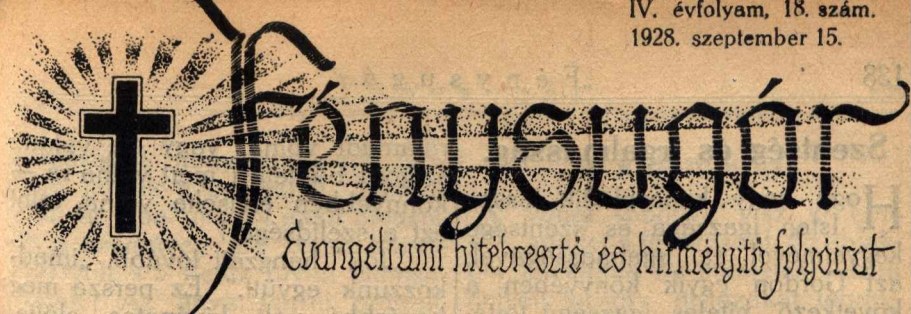 IV. évfolyam, 18. szám.
1928. szeptember 15.
Fénysugár
Evangéliumi hitébresztő és hitmélyítő folyóirat